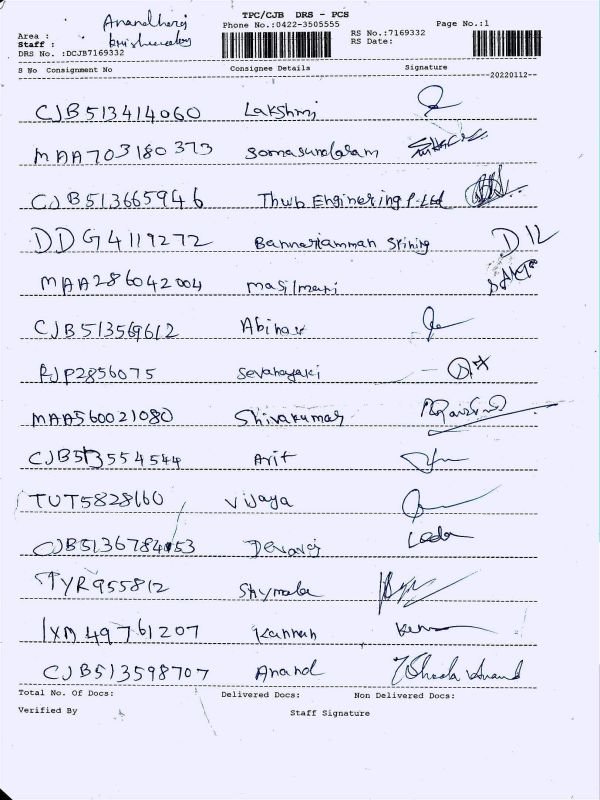 TPC/CJB DRS - PCS
Anandharaj
Phone No.:0422-3505555
Page No.:1
RS No.:7169332
RS Date:
Area :
Staff :
DRS No. :DCJB7169332
S No Consignment No Consignee Details Signature
--20220112--
CJB513414060 Lakshmi
MAA703180373 Somasundaram
CJB513665946 Thub Enginering P.Ltd
DDG4119272 Bannariamman Spining
MAA286042004 masilmani
CJB513569612 Abinav
RJP2856075 Sevanayaki
MAA560021080 Shivakumar
CJB513554544 Arit
TUT5828160 Vijaya
CJB513678453 Devaraj
TYR955812 Shymala
IXM49761207 Kannan
CJB513598707 Anand
Total No. Of Docs: Delivered Docs: Non Delivered Docs:
Verified By Staff Signature